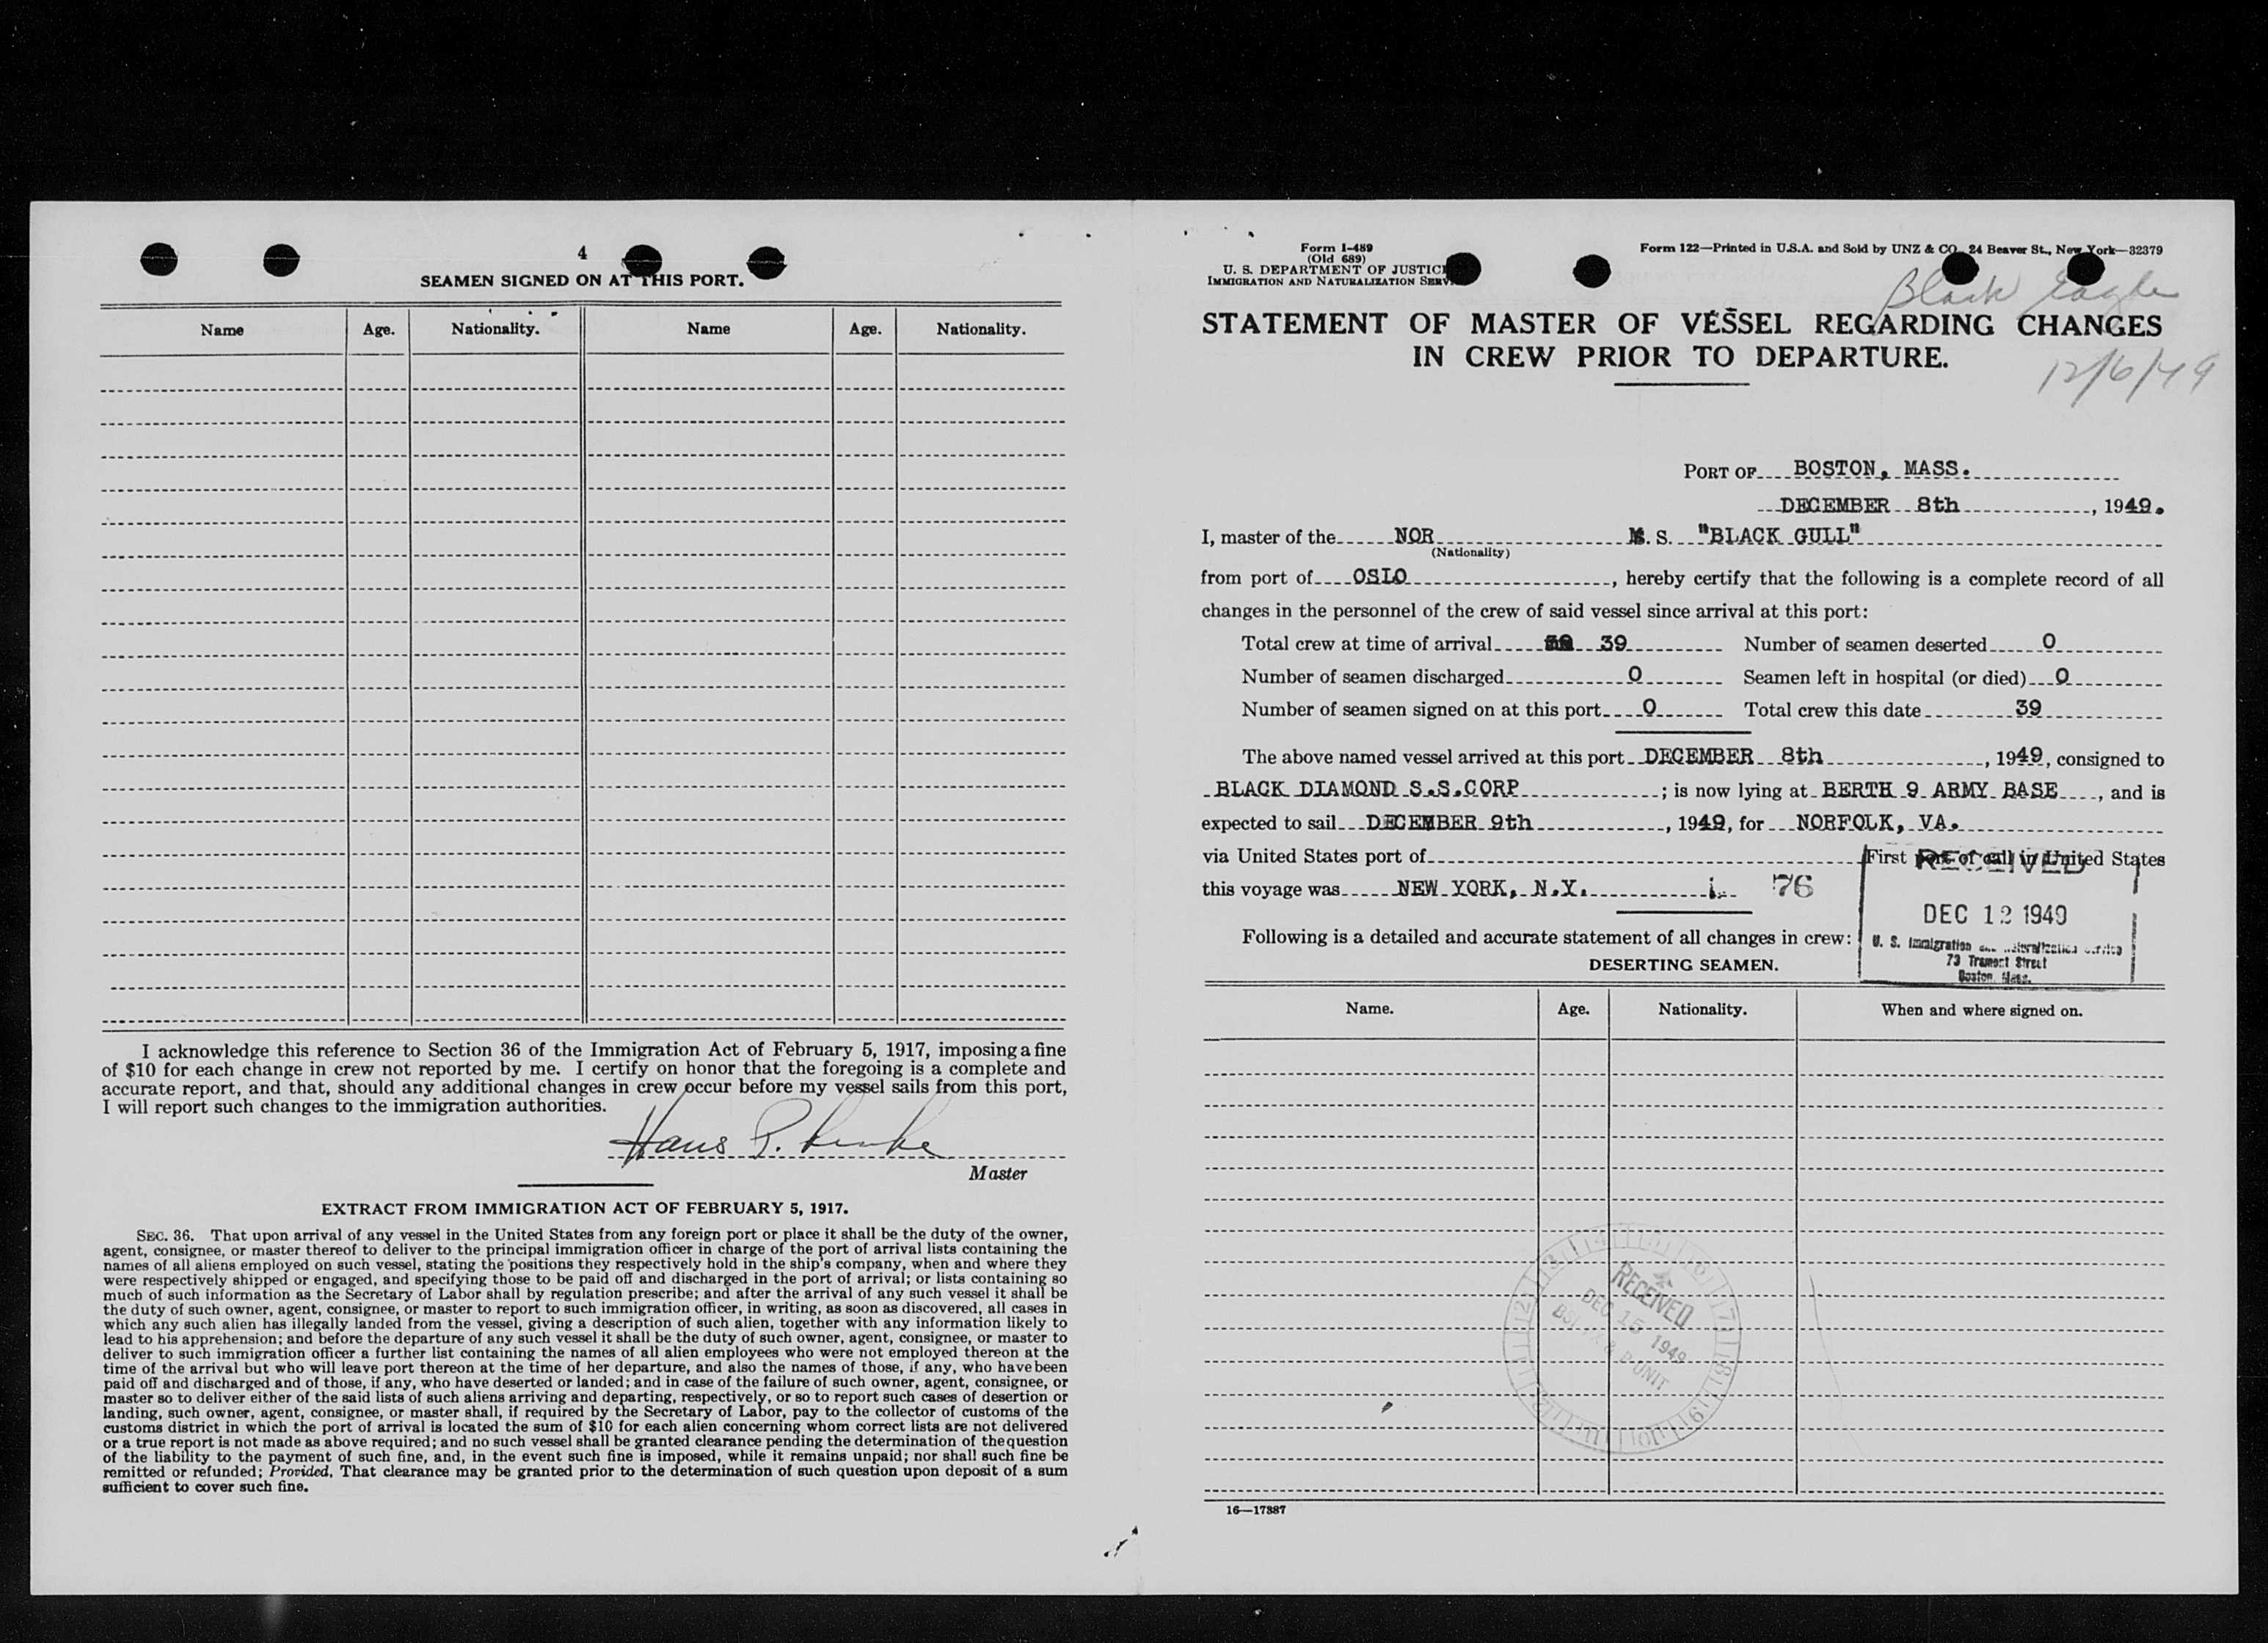 4
SEAMEN SIGNED ON AT THIS PORT.
Name Age. Nationality. Name Age. Nationality.
I acknowledge this reference to Section 36 of the Immigration Act of February 5, 1917, imposing a fine
of $10 for each change in crew not reported by me. I certify on honor that the foregoing is a complete and
accurate report, and that, should any additional changes in crew occur before my vessel sails from this port,
I will report such changes to the immigration authorities.
Hans P.
Master
EXTRACT FROM IMMIGRATION ACT OF FEBRUARY 5, 1917.
SEC. 36. That upon arrival of any vessel in the United States from any foreign port or place it shall be the duty of the owner,
agent, consignee, or master thereof to deliver to the principal immigration officer in charge of the port of arrival lists containing the
names of all aliens employed on such vessel, stating the positions they respectively hold in the ship's company, when and where they
were respectively shipped or engaged, and specifying those to be paid off and discharged in the port of arrival; or lists containing so
much of such information as the Secretary of Labor shall by regulation prescribe; and after the arrival of any such vessel it shall be
the duty of such owner, agent, consignee, or master to report to such immigration officer, in writing, as soon as discovered, all cases in
which any such alien has illegally landed from the vessel, giving a description of such alien, together with any information likely to
lead to his apprehension; and before the departure of any such vessel it shall be the duty of such owner, agent, consignee, or master to
deliver to such immigration officer a further list containing the names of all alien employees who were not employed thereon at the
time of the arrival but who will leave port thereon at the time of her departure, and also the names of those, if any, who have been
paid off and discharged and of those, if any, who have deserted or landed; and in case of the failure of such owner, agent, consignee, or
master so to deliver either of the said lists of such aliens arriving and departing, respectively, or so to report such cases of desertion or
landing, such owner, agent, consignee, or master shall, if required by the Secretary of Labor, pay to the collector of customs of the
customs district in which the port of arrival is located the sum of $10 for each alien concerning whom correct lists are not delivered
or a true report is not made as above required; and no such vessel shall be granted clearance pending the determination of the question
of the liability to the payment of such fine, and, in the event such fine is imposed, while it remains unpaid; nor shall such fine be
remitted or refunded; Provided, That clearance may be granted prior to the determination of such question upon deposit of a sum
sufficient to cover such fine.
Form I-489
(Old 689)
U. S. DEPARTMENT OF JUSTICE
IMMIGRATION AND NATURALIZATION SERV
Form 122—Printed in U.S.A. and Sold by UNZ & CO., 24 Beaver St., New York—32379
Black Eagle
STATEMENT OF MASTER OF VESSEL REGARDING CHANGES
IN CREW PRIOR TO DEPARTURE.
12/6/49
PORT OF BOSTON, MASS.
DECEMBER 8th, 1949.
I, master of the NOR M. S. "BLACK GULL"
(Nationality)
from port of OSLO, hereby certify that the following is a complete record of all
changes in the personnel of the crew of said vessel since arrival at this port:
Total crew at time of arrival 39 Number of seamen deserted 0
Number of seamen discharged 0 Seamen left in hospital (or died) 0
Number of seamen signed on at this port 0 Total crew this date 39
The above named vessel arrived at this port DECEMBER 8th, 1949, consigned to
BLACK DIAMOND S.S.CORP; is now lying at BERTH 9 ARMY BASE, and is
expected to sail DECEMBER 9th, 1949, for NORFOLK, VA.
via United States port of First port of call in United States
this voyage was NEW YORK, N.Y. 76
RECEIVED
DEC 12 1949
U. S. Immigration and Naturalization Service
73 Tremont Street
Boston, Mass.
Following is a detailed and accurate statement of all changes in crew:
DESERTING SEAMEN.
Name. Age. Nationality. When and where signed on.
RECEIVED
DEC 15 1949
UNIT
16—17887